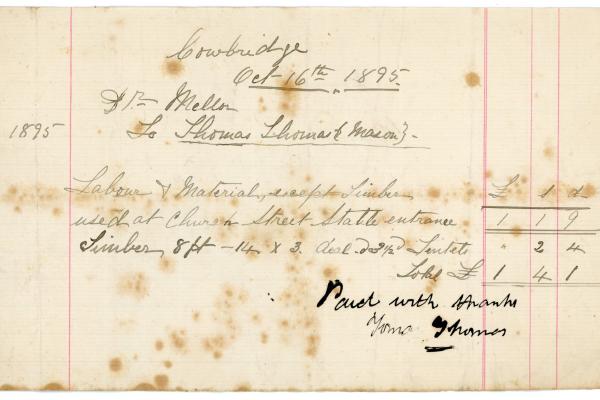 Cowbridge
Oct 16th 1895.
Dr Mellor
1895 To Thomas Thomas (Mason).
Labour & Material, except Timber £ s d
used at Church Street Stable entrance 1 1 9
Timber 8 ft - 14 x 3. deal Lintels " 2 4
Total £ 1 4 1
Paid with thanks
Thomas